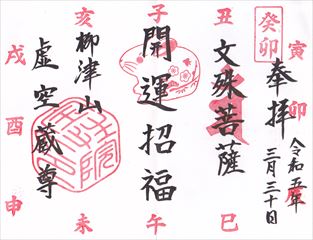 癸卯
奉拝
令和五年
三月三十日
文殊菩薩
開運招福
柳津山
虚空蔵尊
子
丑
寅
卯
巳
午
未
申
酉
戌
亥